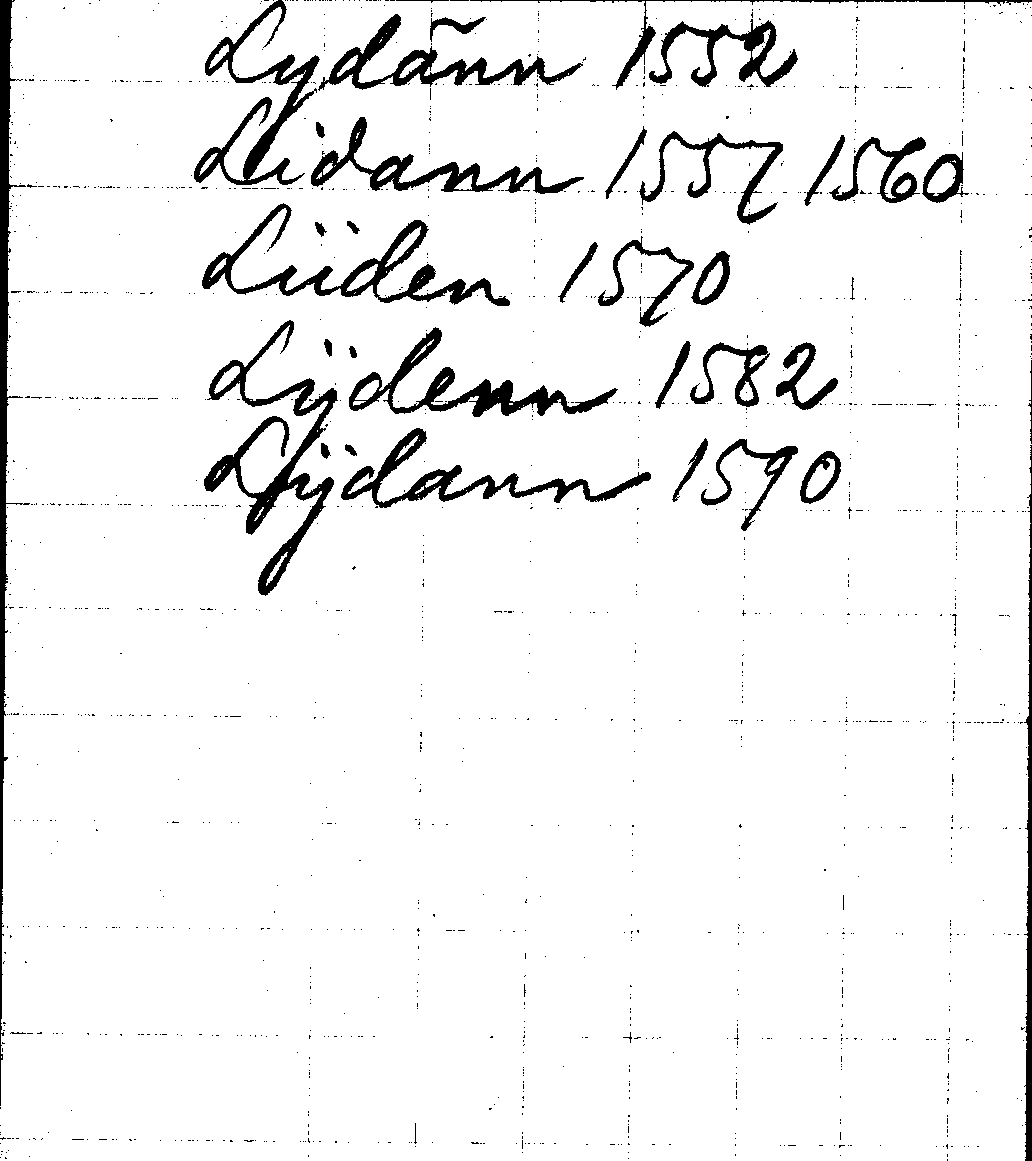 Lydãnn 1552
Lidann 1557 1560
Liiden 1570
Lÿdenn 1582
Lÿdann 1590